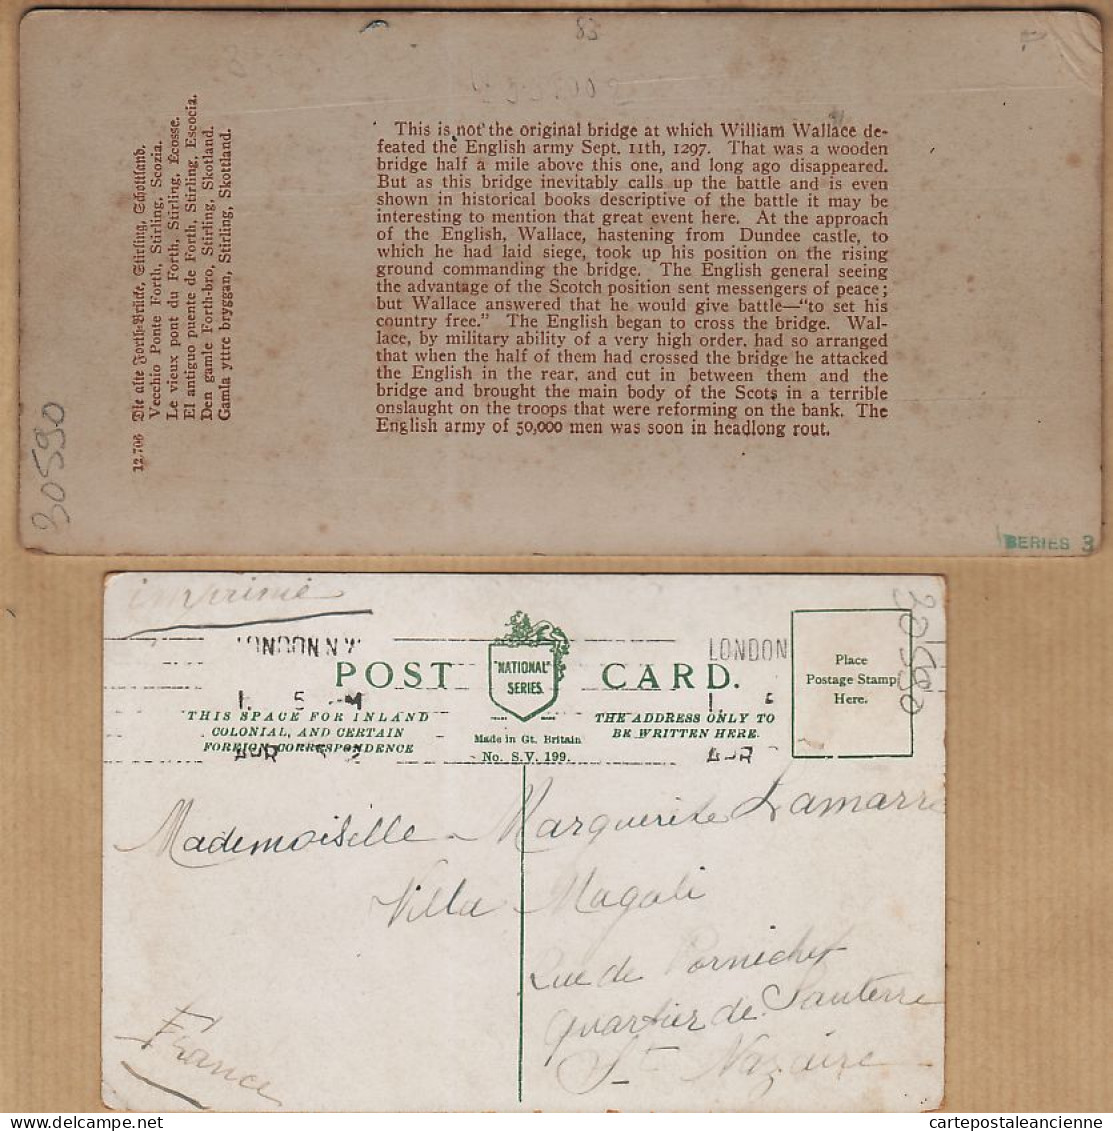 83
This is not the original bridge at which William Wallace de-
feated the English army Sept. 11th, 1297. That was a wooden
bridge half a mile above this one, and long ago disappeared.
But as this bridge inevitably calls up the battle and is even
shown in historical books descriptive of the battle it may be
interesting to mention that great event here. At the approach
of the English, Wallace, hastening from Dundee castle, to
which he had laid siege, took up his position on the rising
ground commanding the bridge. The English general seeing
the advantage of the Scotch position sent messengers of peace;
but Wallace answered that he would give battle—"to set his
country free." The English began to cross the bridge. Wal-
lace, by military ability of a very high order, had so arranged
that when the half of them had crossed the bridge he attacked
the English in the rear, and cut in between them and the
bridge and brought the main body of the Scots in a terrible
onslaught on the troops that were reforming on the bank. The
English army of 50,000 men was soon in headlong rout.
12,706 Die alte Forth-Brücke, Stirling, Schottland.
Vecchio Ponte Forth, Stirling, Scozia.
Le vieux pont du Forth, Stirling, Écosse.
El antiguo puente de Forth, Stirling, Escocia.
Den gamle Forth-bro, Stirling, Skotland.
Gamla yttre bryggan, Stirling, Skottland.
30590
SERIES 3
imprimé
LONDON N.W.
LONDON
30590
POST CARD.
"NATIONAL"
SERIES
Place
Postage Stamp
Here.
1. 5 PM
1. 5
THIS SPACE FOR INLAND
COLONIAL, AND CERTAIN
FOREIGN CORRESPONDENCE
TRADE MARK
Made in Gt. Britain
No. S.V. 199.
THE ADDRESS ONLY TO
BE WRITTEN HERE.
APR
APR
Mademoiselle Marguerite Lamarre
Villa Magali
Rue de Pornichet
Quartier de Sauterre
St Nazaire
France
cartepostaleancienne.com